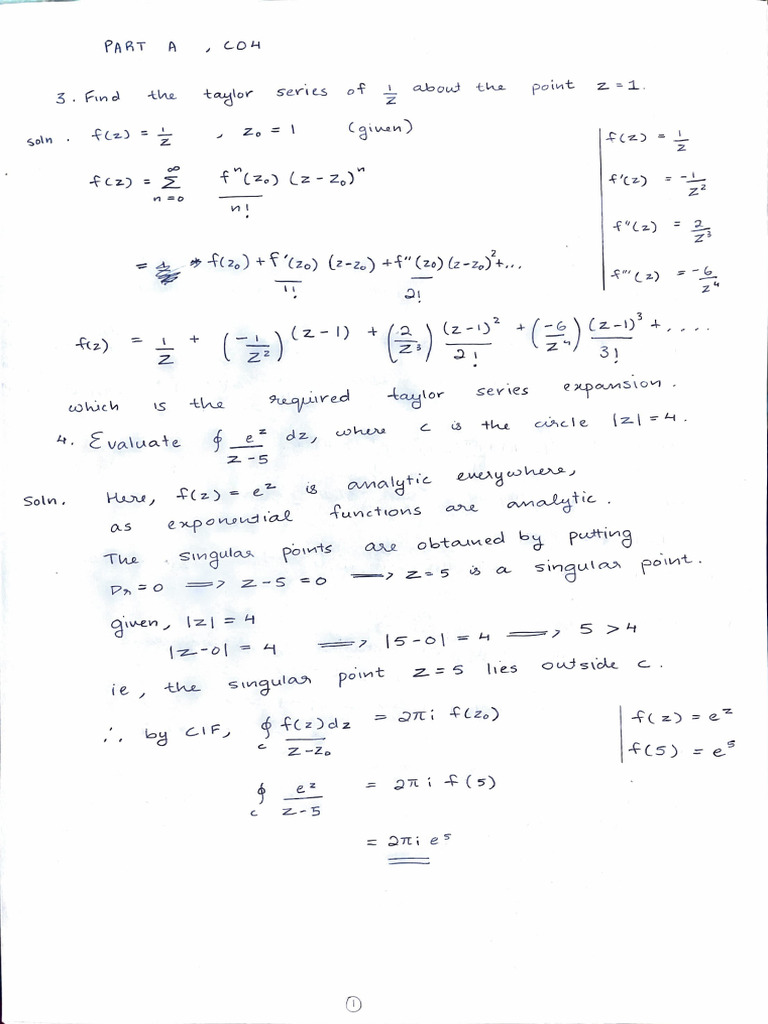 PART A , CO4
3. Find the taylor series of 1/z about the point z=1.
Soln. f(z) = 1/z , z₀ = 1 (given)
f(z) = 1/z
f'(z) = -1/z²
f''(z) = 2/z³
f'''(z) = -6/z⁴
f(z) = ∞Σn=0 fⁿ(z₀) (z-z₀)ⁿ / n!
= f(z₀) + f'(z₀) (z-z₀) / 1! + f''(z₀) (z-z₀)² / 2! + ...
f(z) = 1/z + (-1/z²) (z-1) + (2/z³) (z-1)² / 2! + (-6/z⁴) (z-1)³ / 3! + ....
which is the required taylor series expansion.
4. Evaluate ∮ e^z / z-5 dz, where c is the circle |z|=4.
Soln. Here, f(z) = e^z is analytic everywhere,
as exponential functions are analytic.
The singular points are obtained by putting
Dr=0 ⟹ z-5=0 ⟹ z=5 is a singular point.
given, |z|=4
|z-0|=4 ⟹ |5-0|=4 ⟹ 5>4
ie, the singular point z=5 lies outside c.
∴ by CIF, ∮c f(z)dz / z-z₀ = 2πi f(z₀)
f(z) = e^z
f(5) = e⁵
∮c e^z / z-5 = 2πi f(5)
= 2πi e⁵
1